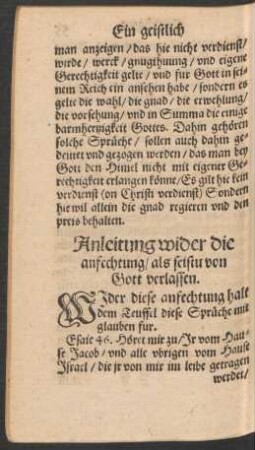 Ein geistlich
man anzeigen/das hie nicht verdienst/
wirde/ werck/gnugthuung/ vnd eigene
Gerechtigkeit gelte/ vnd fur Gott in sei-
nem Reich ein ansehen habe/sondern es
gelte die wahl/ die gnad/ die erwehlung/
die vorsehung/ vnd in Summa die einige
barmhertzigkeit Gottes. Dahin gehören
solche Sprüche/ sollen auch dahin ge-
deutet vnd gezogen werden/ das man bey
Gott den Himel nicht mit eigener Ge-
rechtigkeit erlangen könne/Es gilt hie kein
verdienst (on Christi verdienst) Sondern
hie wil allein die gnad regieren vnd den
preis behalten.
Anleitung wider die
anfechtung/als seistu von
Gott verlassen.
WIder diese anfechtung halt
dem Teuffel diese Sprüche mit
glauben fur.
Esaie 46. Höret mir zu/Jr vom Hau-
se Jacob/vnd alle vbrigen vom Hause
Israel/die jr von mir im leibe getragen
werdet/